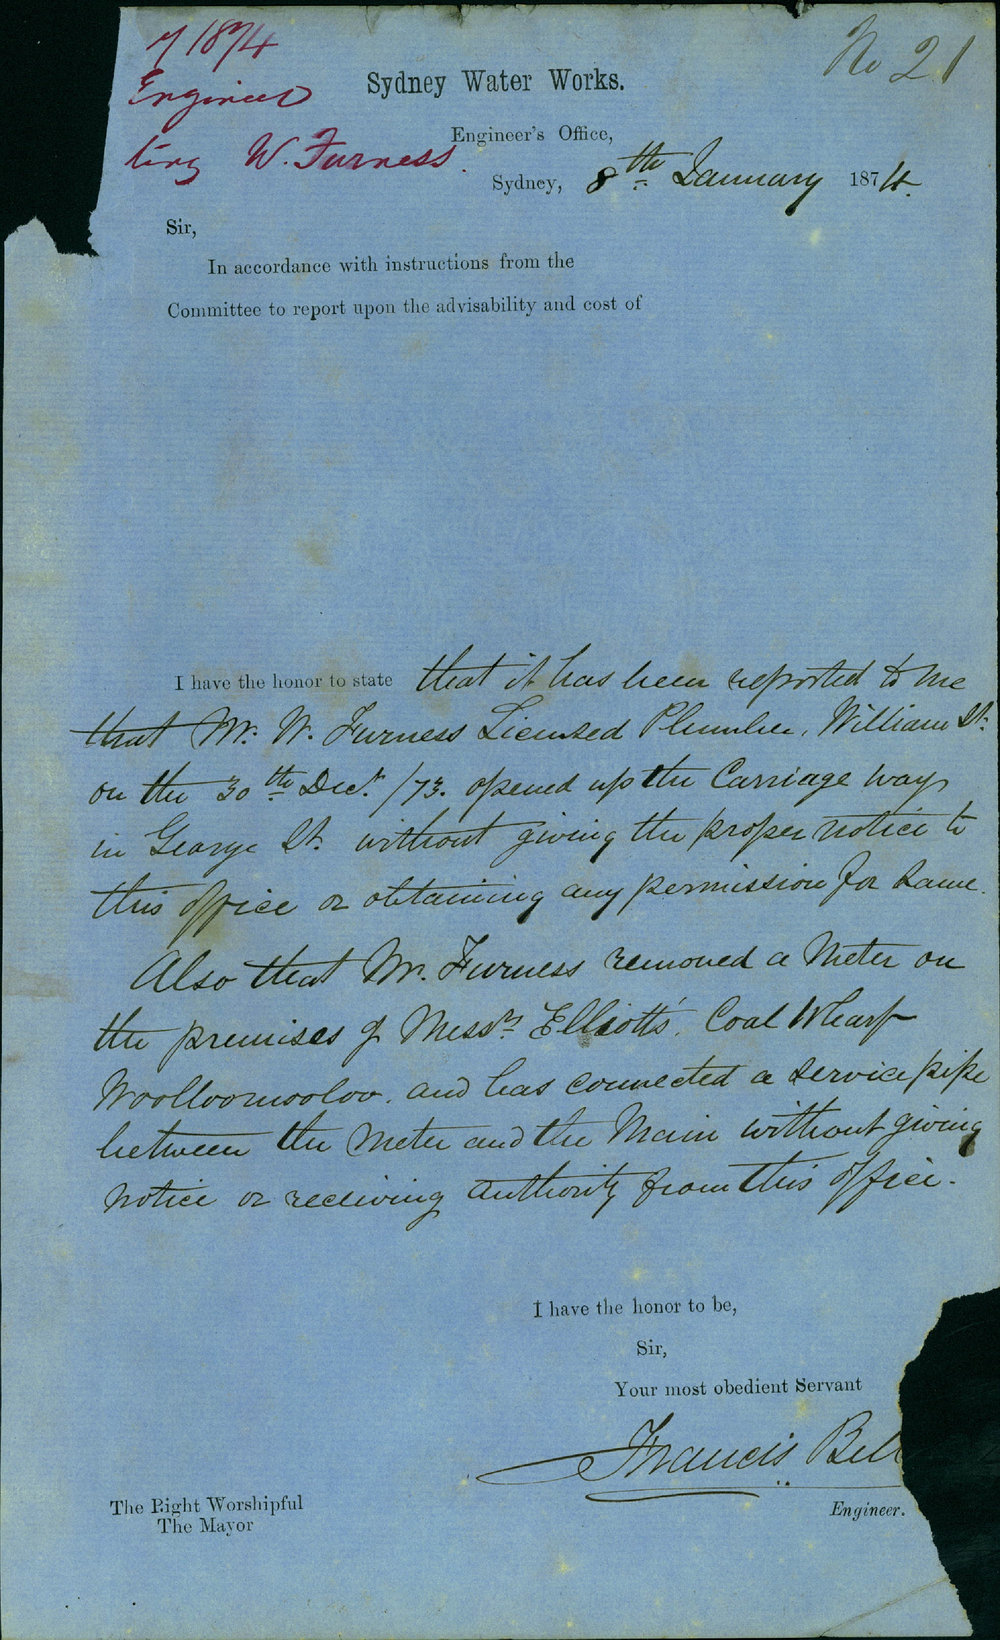 7 1874
Engineer
ting W. Furness.
No 21
Sydney Water Works.
Engineer's Office,
Sydney, 8th January 1874.
Sir,
In accordance with instructions from the
Committee to report upon the advisability and cost of
I have the honor to state that it has been reported to me
that Mr. W. Furness Licensed Plumber, William St.
on the 30th Decr. /73. opened up the Carriage way
in George St. without giving the proper notice to
this office or obtaining any permission for same.
Also that Mr. Furness removed a Meter on
the premises of Messrs. Elliott's. Coal Wharf
Woolloomooloo. and has connected a service pipe
between the Meter and the Main without giving
notice or receiving authority from this office.
I have the honor to be,
Sir,
Your most obedient Servant
Francis Bell
Engineer.
The Right Worshipful
The Mayor